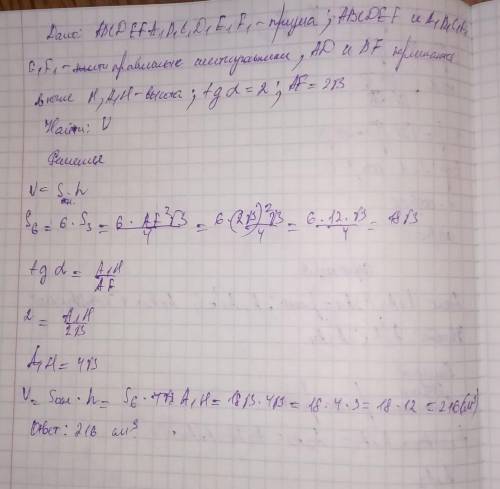 Дано: ABCDEFA₁B₁C₁D₁E₁F₁ - призма; ABCDEF и A₁B₁C₁D₁
E₁F₁ - правильные шестиугольники, AD и BF
точке H, A₁H - высота; tg α = 2; AF = 2√3
Найти: V
Решение
V = Sосн. · h
S₆ = 6 · S₃ = 6 · AF²√3/4 = 6 · (2√3)²√3/4 = 6 · 12 · √3/4 = 18√3
tg α = A₁H/AF
2 = A₁H/2√3
A₁H = 4√3
V = Sосн · h = S₆ · A₁H = 18√3 · 4√3 = 18 · 4 · 3 = 18 · 12 = 216 (см³)
Ответ: 216 см³